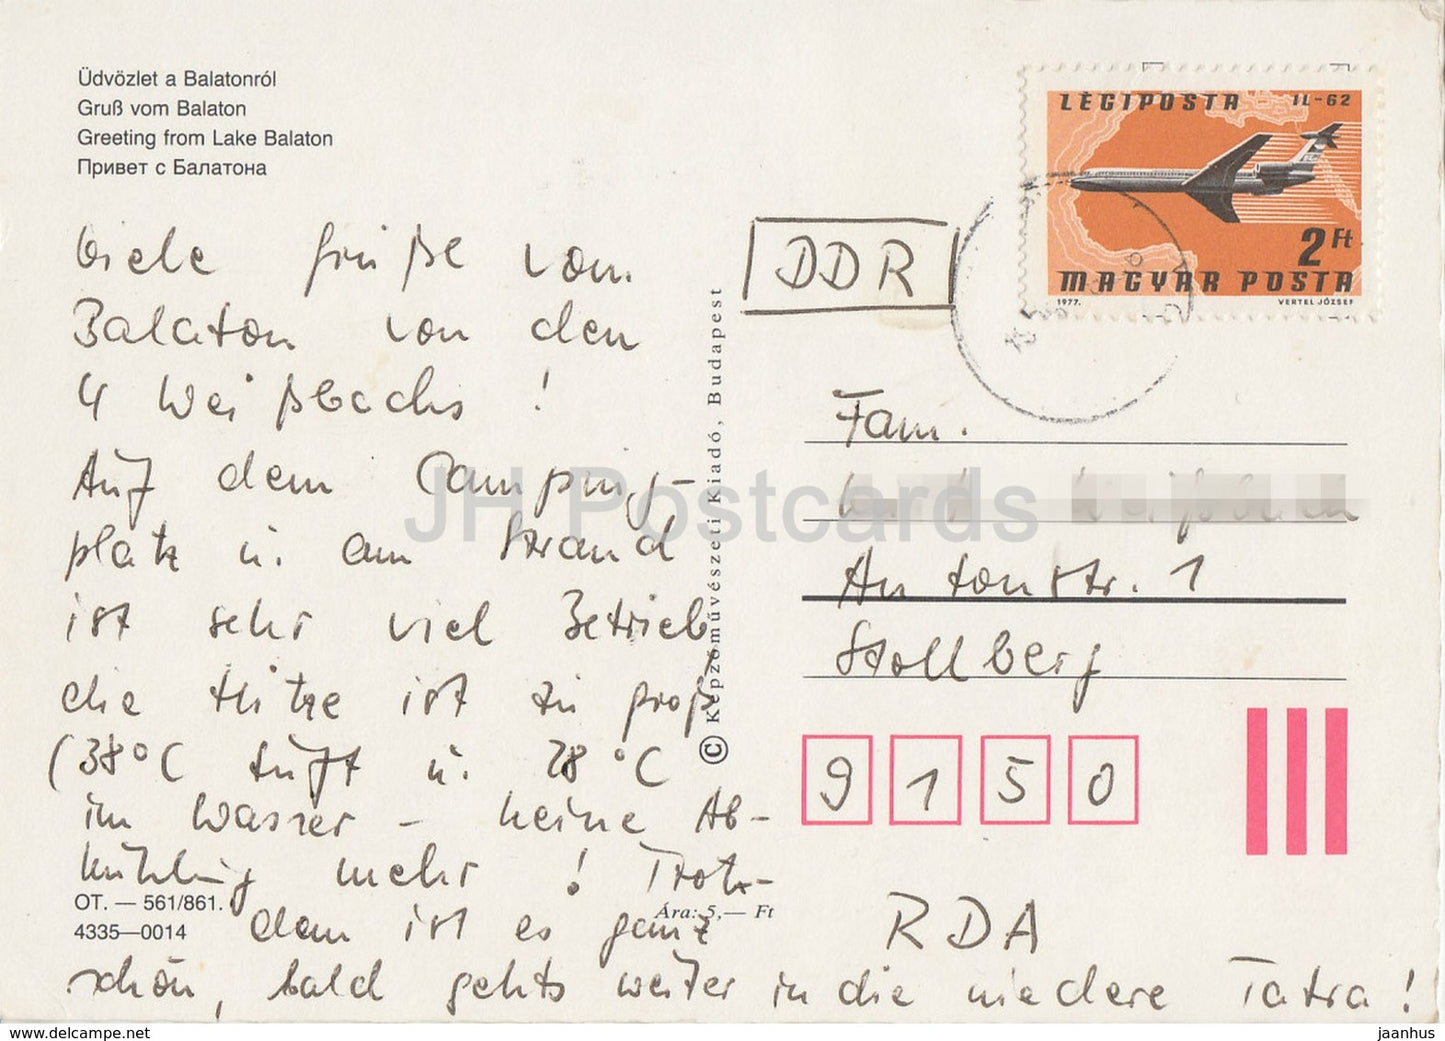 Üdvözlet a Balatonról
Gruß vom Balaton
Greeting from Lake Balaton
Привет с Балатона
Viele Grüße vom
Balaton von den
4 Weißbachs !
Auf dem Camping-
platz u. am Strand
ist sehr viel Betrieb
die Hitze ist zu groß
(38°C Luft u. 28°C
im Wasser – keine Ab-
kühlung mehr ! Trotz-
dem ist es ganz
schön, bald gehts weiter in die niedere Tatra !
OT. — 561/861.
4335—0014
Ára: 5,— Ft
© Képzőművészeti Kiadó, Budapest
LÉGIPOSTA IL-62
2 Ft
MAGYAR POSTA
1977. VERTEL JÓZSEF
DDR
Fam.
Antonstr. 1
Stollberg
9150
RDA
JH Postcards
www.delcampe.net
jaanhus